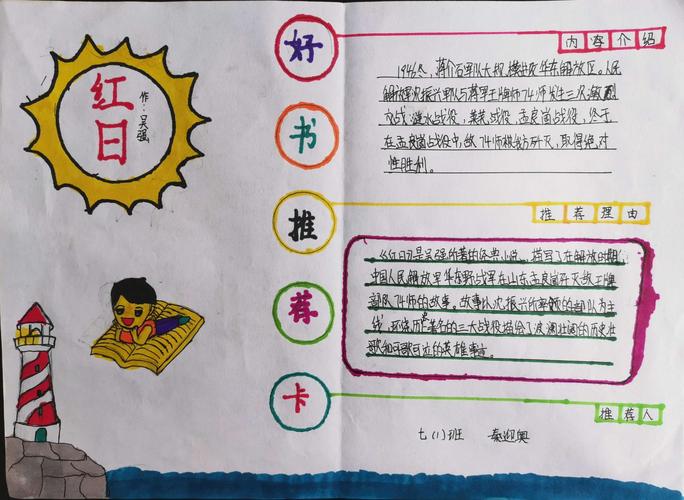 红日
作：吴强
好书推荐卡
内容介绍
1946冬，蒋介石军队大规模进攻华东解放区。人民
解放军沈振兴部队与蒋军王牌师74师发生三次激烈
交战：涟水战役，莱芜战役，孟良崮战役，终于
在孟良崮战役中，敌74师被全歼灭，取得绝对
性胜利。
推荐理由
《红日》是吴强所著的经典小说，描写了在解放时期
中国人民解放军华东野战军在山东孟良崮歼灭敌王牌
部队74师的故事。故事以沈振兴所率领的部队为主
线，环绕历史著名的三大战役描绘了波澜壮阔的历史壮
歌和可歌可泣的英雄事迹。
推荐人
七（1）班 秦迎奥